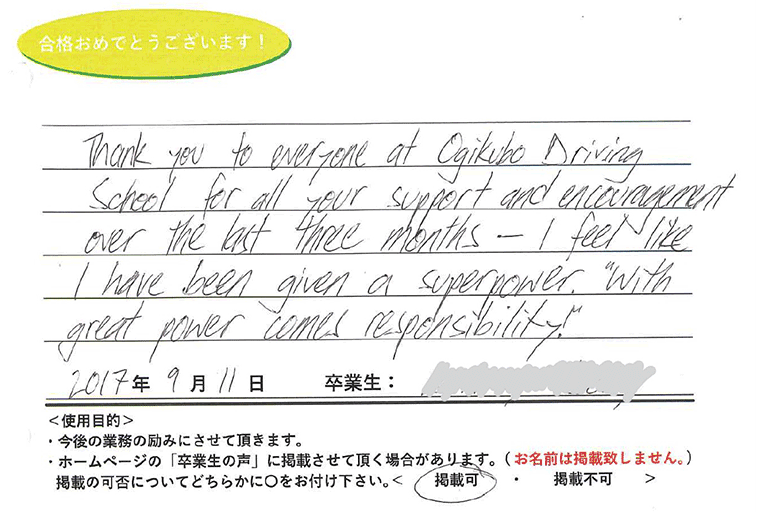 合格おめでとうございます！
Thank you to everyone at Ogikubo Driving
School for all your support and encouragement
over the last three months — I feel like
I have been given a superpower. "With
great power comes responsibility!"
2017年 9月 11日 卒業生：
＜使用目的＞
・今後の業務の励みにさせて頂きます。
・ホームページの「卒業生の声」に掲載させて頂く場合があります。（お名前は掲載致しません。）
掲載の可否についてどちらかに〇をお付け下さい。＜ 掲載可 ・ 掲載不可 ＞